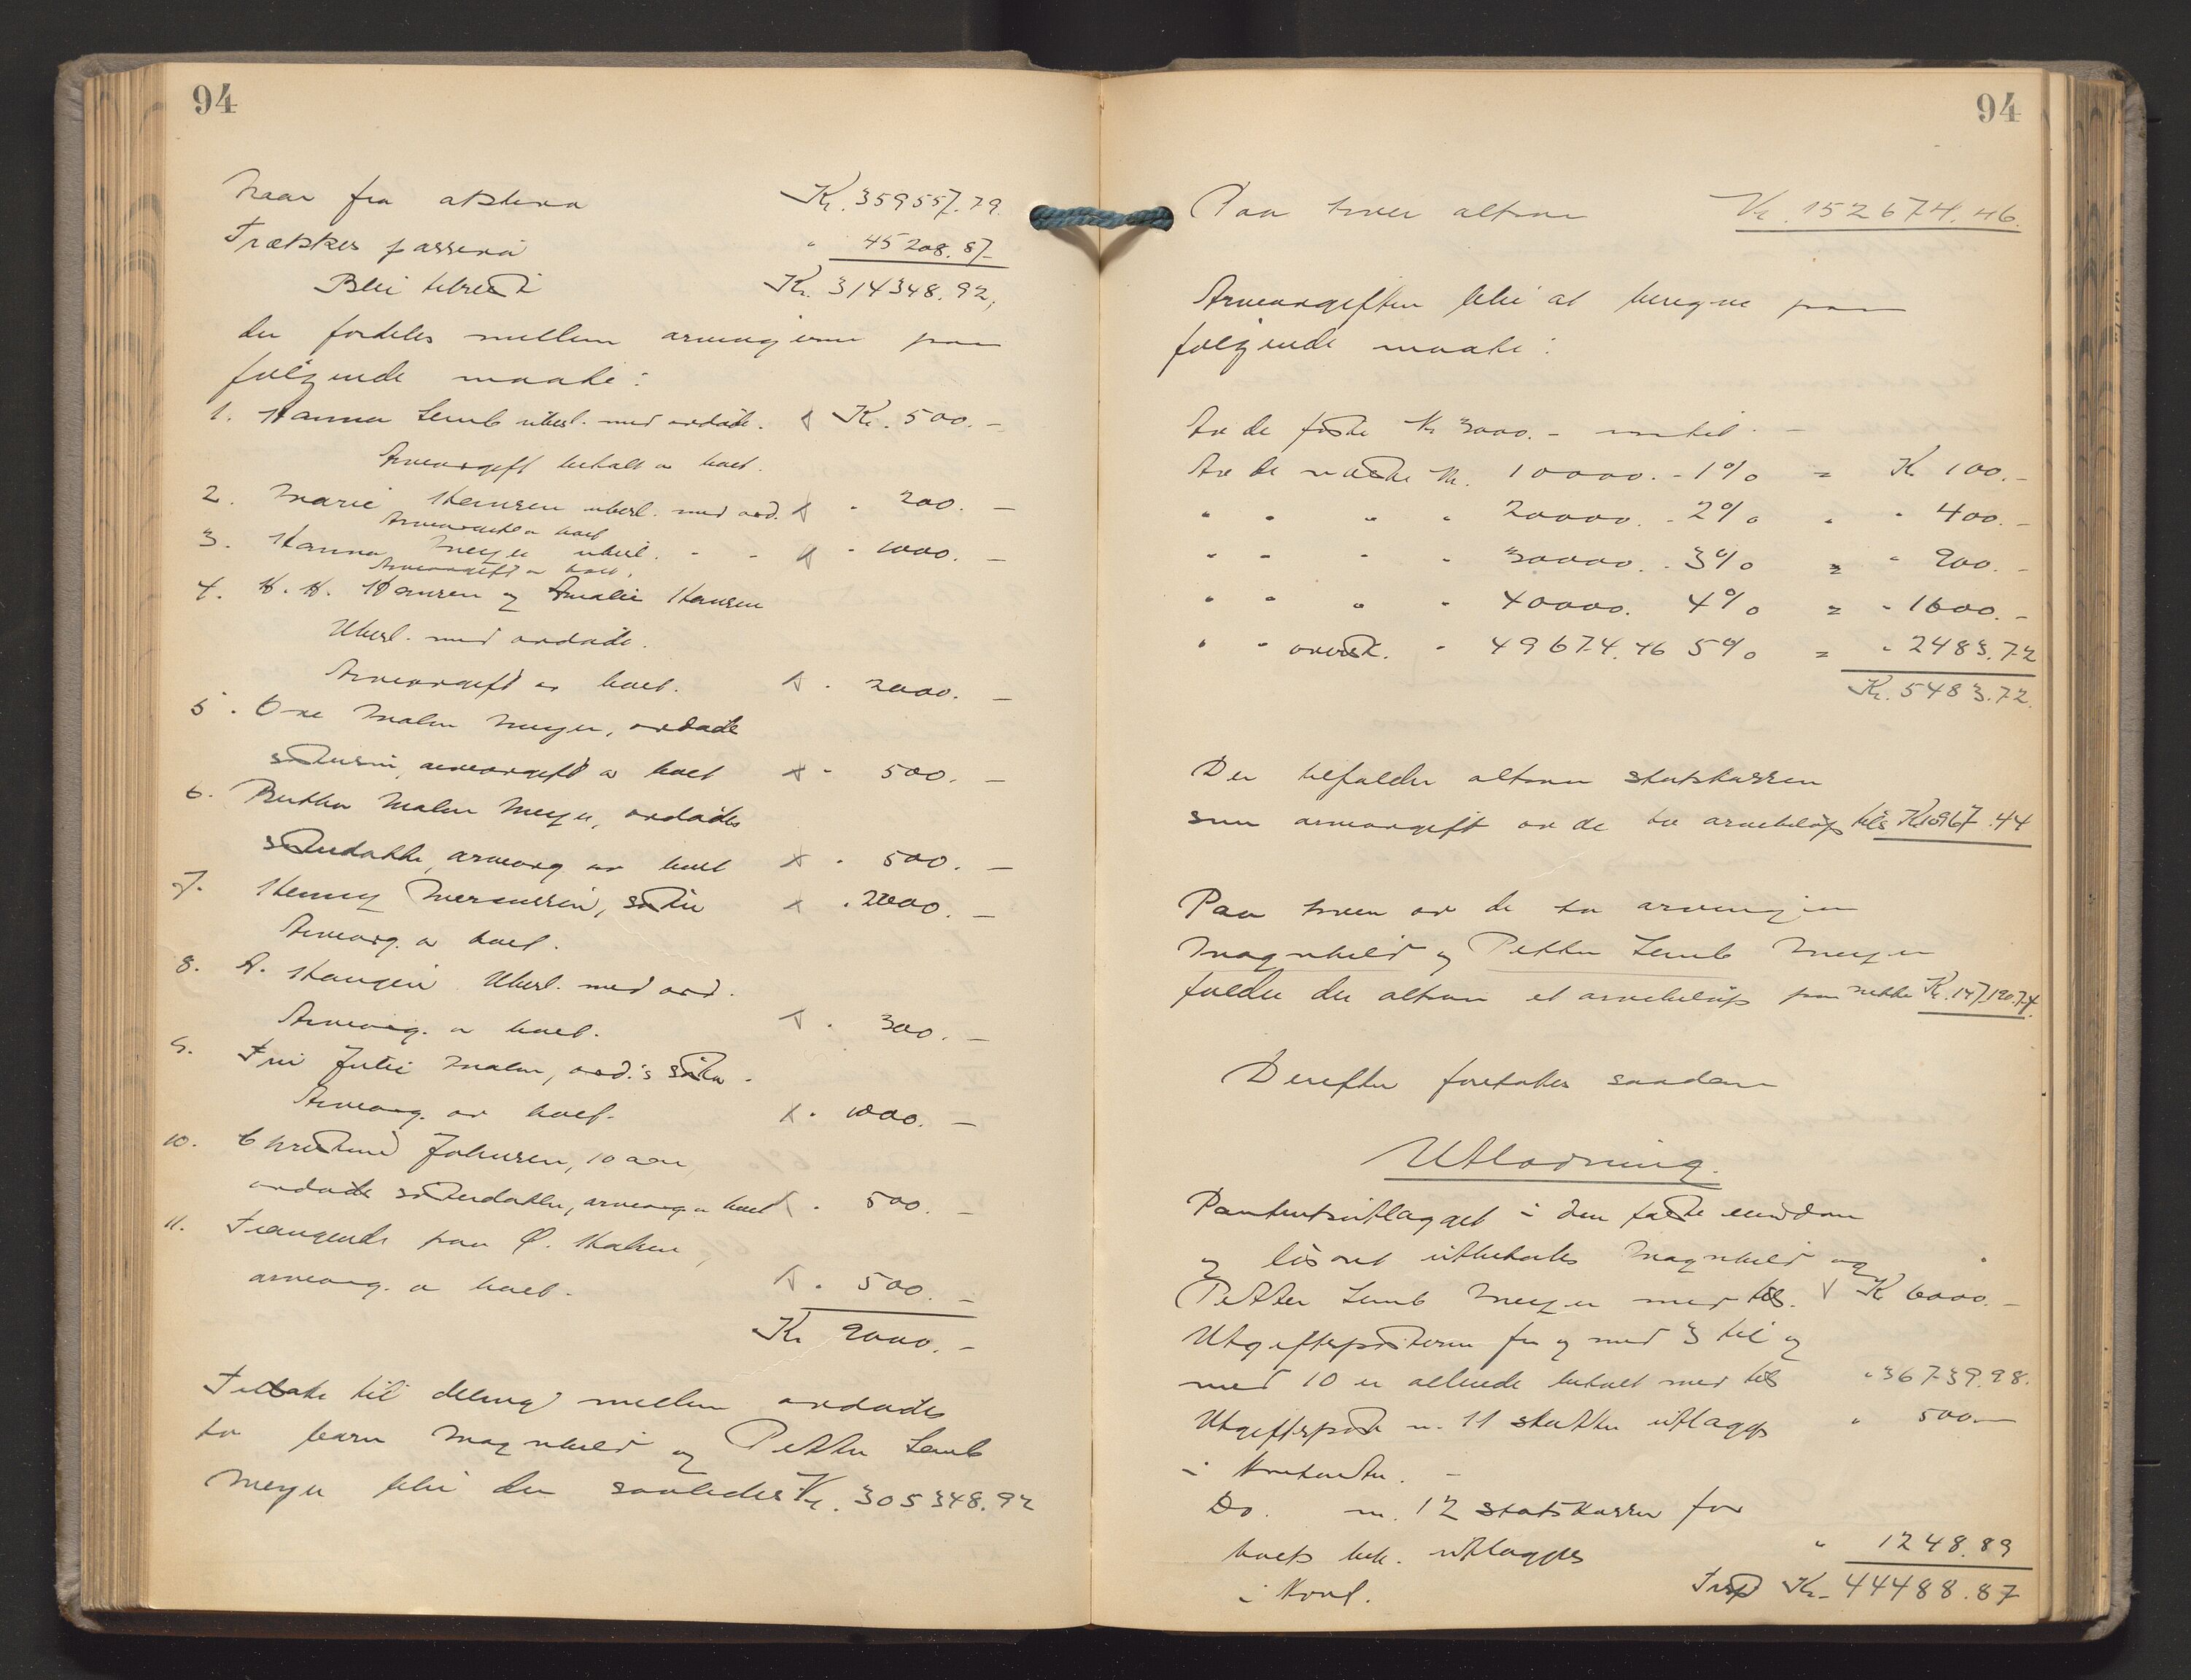 94
Naar fra aktiva Kr. 359557.79.
Trækkes passiva " 45208.87
Blir tilrest Kr. 314348.92,
der fordeles mellem arvingerne paa
følgende maate:
1. Hanna Lemb ubesl. med avdøde. Kr. 500.-
Arveavgift betalt av boet.
2. Marie Hansen ubesl. med avd. " 200.-
Arveavgift av boet
3. Hanna Meyer ubesl. " " " 1000.-
Arveavgift av boet.
4. H. H. Hansen og Amalie Hansen
Ubesl. med avdøde.
Arveavgift av boet. " 2000.-
5. Ove Malm Meyer, avdøde
søstersøn, arveavgift av boet " 500.-
6. Berthe Malm Meyer, avdødes
søsterdatter, arveavg av boet " 500.-
7. Henny , søster " 2000.-
Arveavg. av boet.
8. A. Haugen Ubesl. med avd.
Arveavg. av boet. " 300.-
9. Fru Julie Malm, avd.'s søster.
Arveavg. av boet. " 1000.-
10. Johnsen, 10 aar,
avdøde søsterdatter, arveavg av boet " 500.-
11. Trængende paa Ø.
arveavg. av boet. " 500.-
Kr 9000.-
Tilbake til deling mellem avdødes
to barn Magnhild og Petter Lemb
Meyer blir der saaledes Kr. 305348.92
94
Paa hver altsaa Kr. 152674.46.
Arveavgiften blir at beregne paa
følgende maate:
Av de første Kr 3000.- intet.-
Av de næste Kr. 10000.- 1% = K 100.-
" " " " 20000.- 2% " " 400.-
" " " " 30000.- 3% = " 900.-
" " " " 40000. 4% = " 1600.-
" " oversk. " 49674.46 5% = " 2483.72
Kr. 5483.72.
Der tilfalder altsaa statskassen
som arveavgift av de to arvebeløp tils Kr 10967.44
Paa hver av de to arvinger
Magnhild og Petter Lemb Meyer
falder der altsaa et arvebeløp paa netto Kr. 147190.74.
Derefter foretages saadan
Utlodning.
Panteutlægget i den faste eiendom
og løsøret utbetales Magnhild og
Petter Lemb Meyer med tils. K 6000.-
Utgiftsposterne fra og med 3 til og
med 10 er allerede betalt med tils " 36739.98.
Utgiftspost n. 11 skatter utlægges " 500.-
i kontanter. -
Do. n. 12 statskassen for
boets beh. utlægges " 1248.89
i kont. Trsp Kr. 44488.87